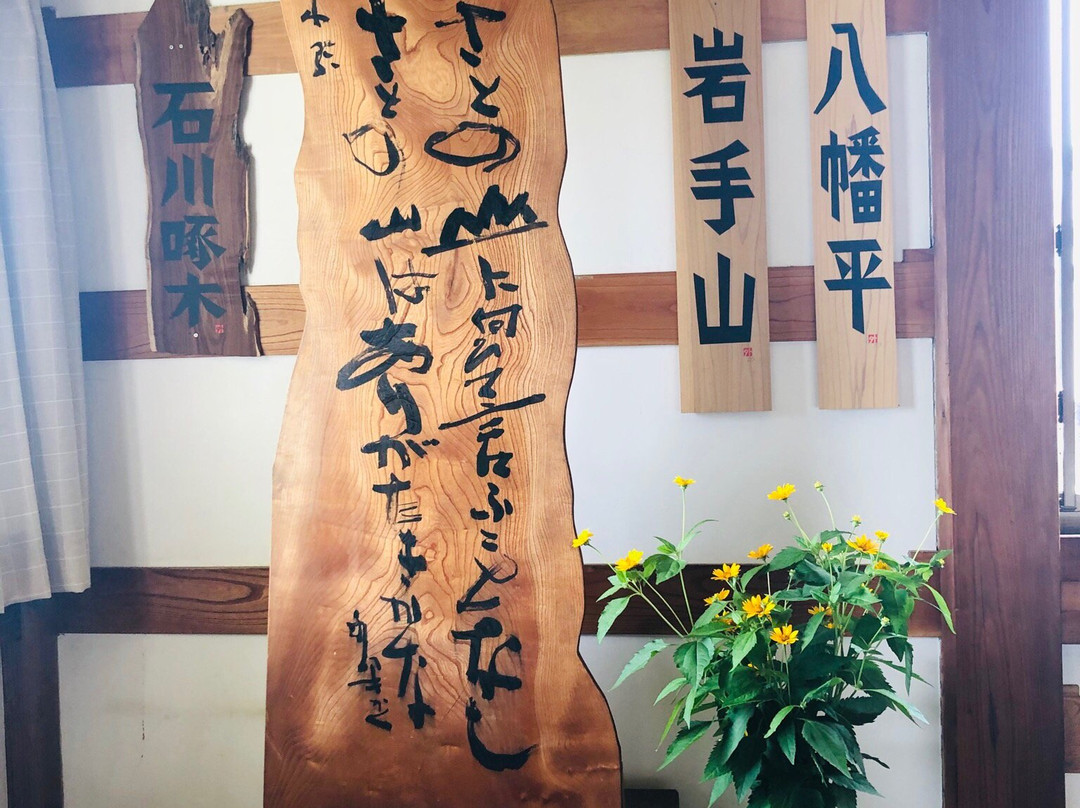 八幡平
岩手山
さとの山に向ひて言ふことなし
さとの山はありがたきかな
石川啄木